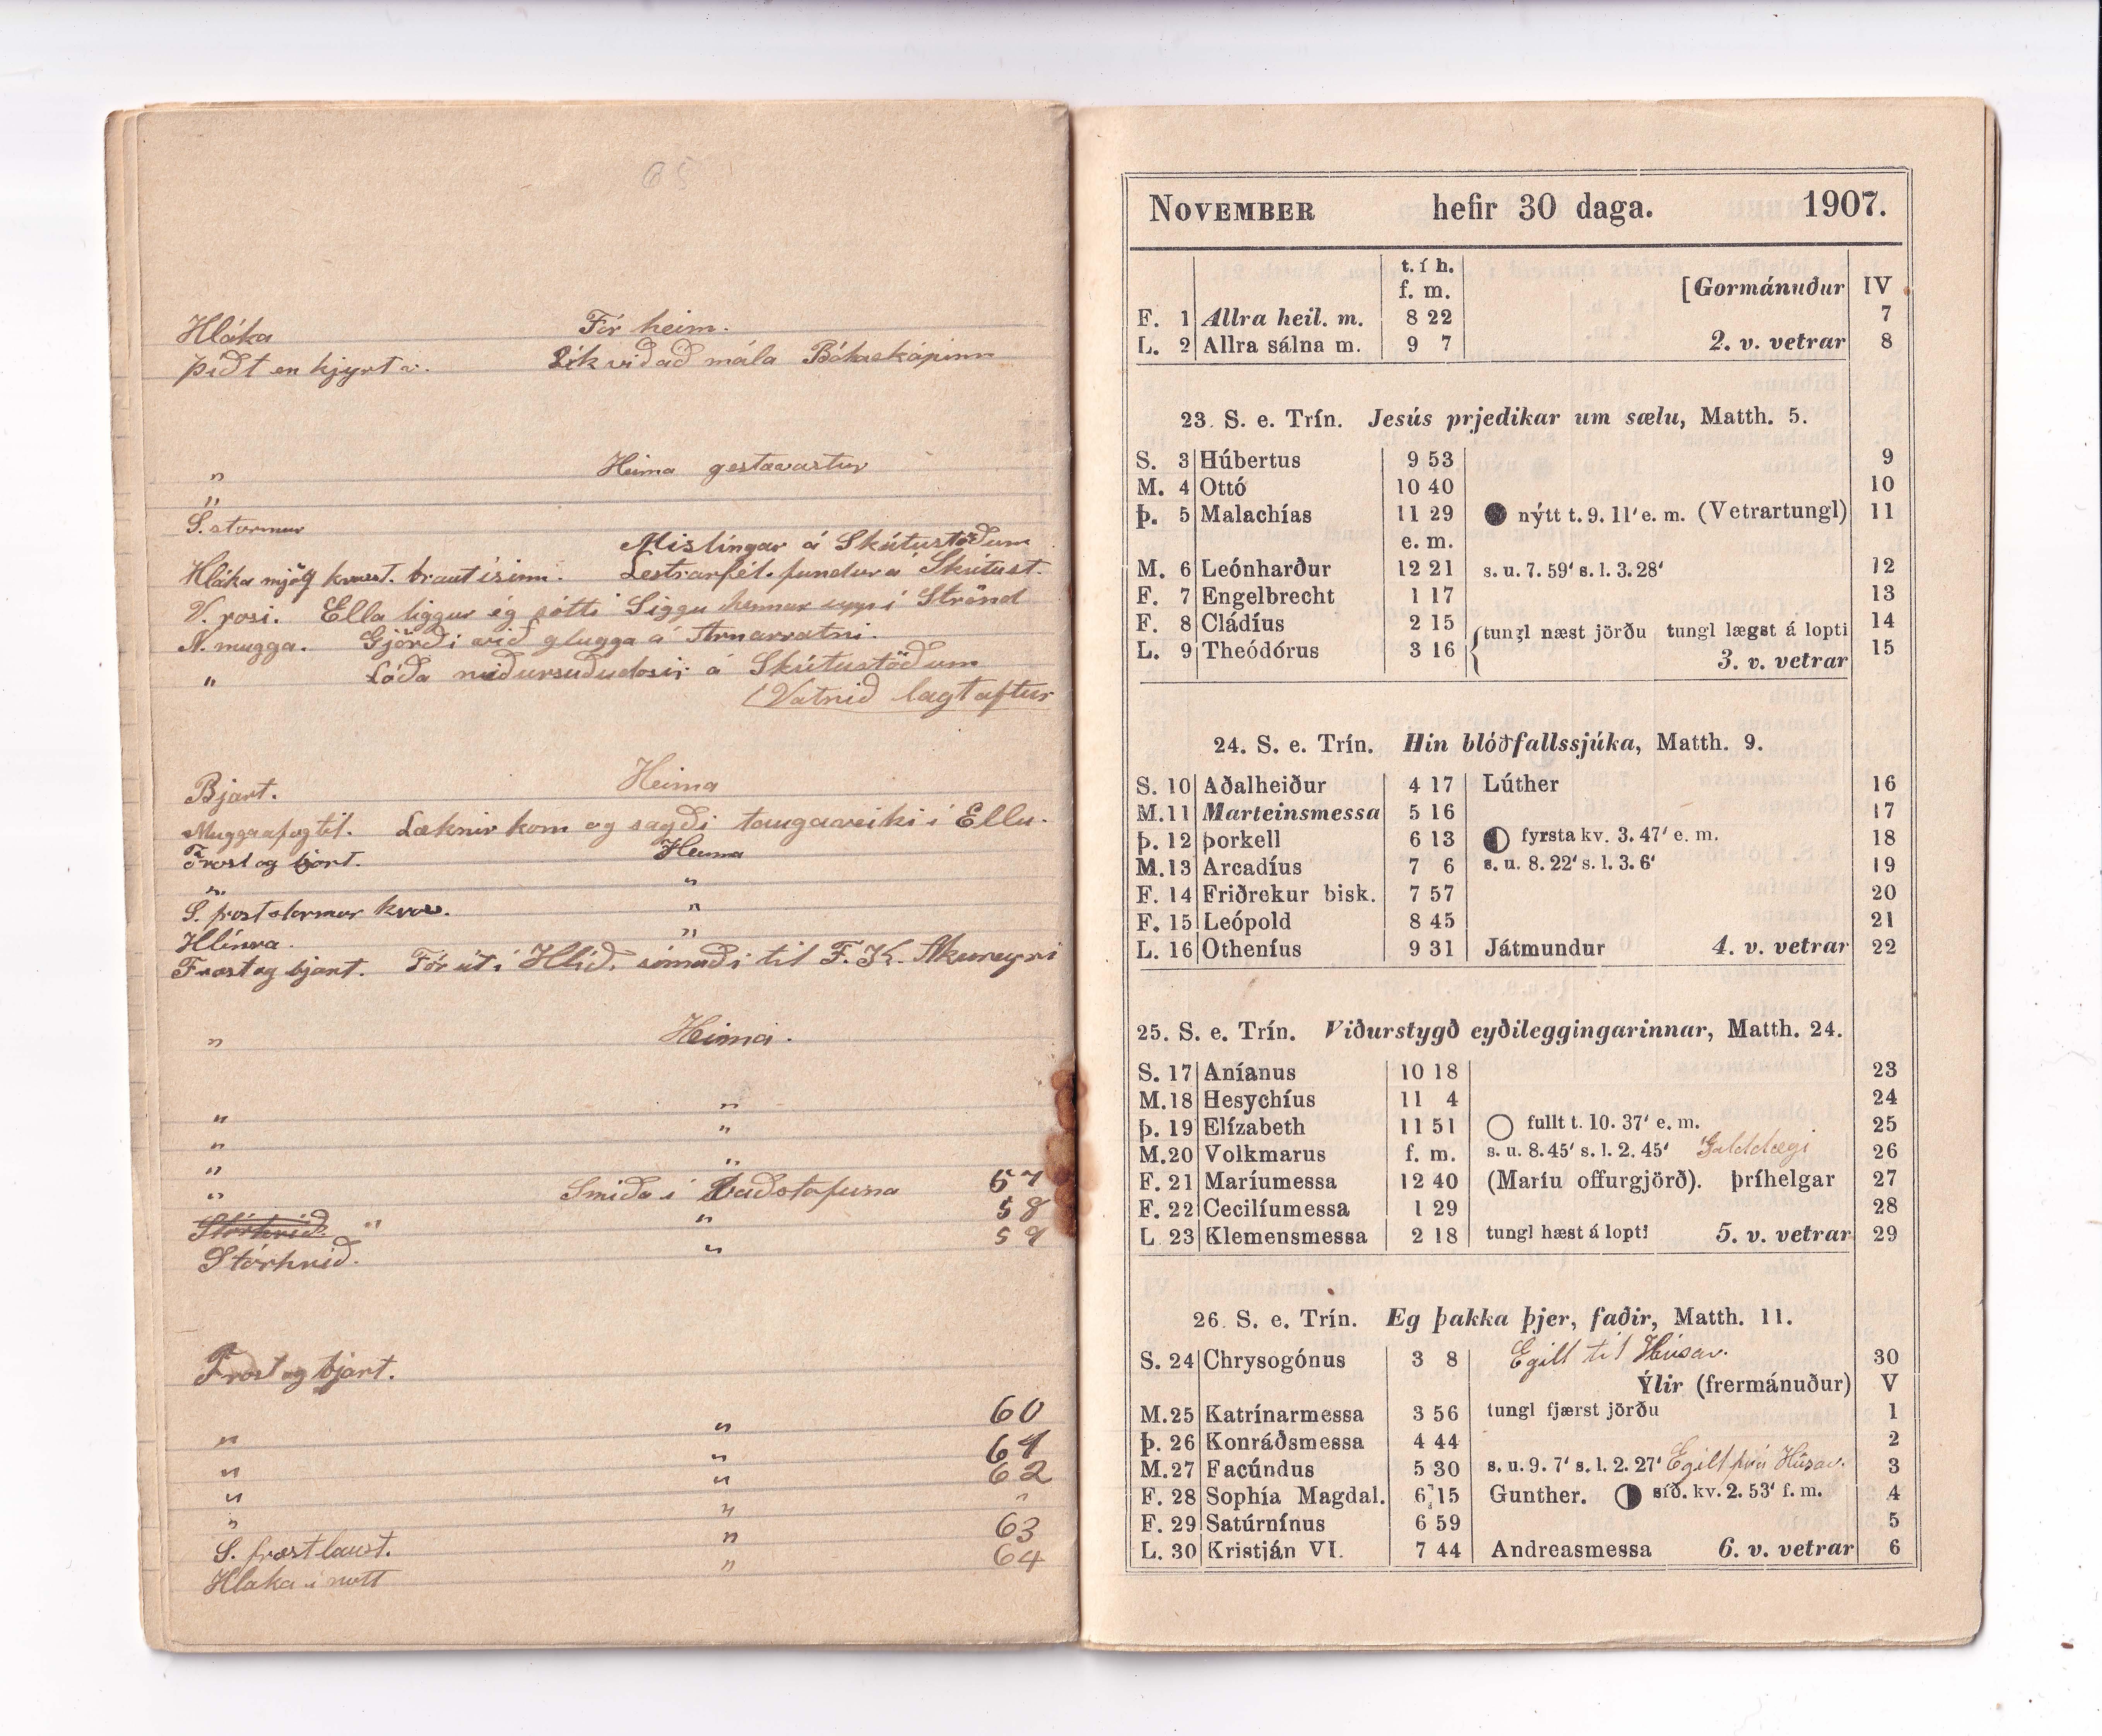 65
Hláka Fór heim.
Þiðt en kjyrt v. Lík við að mála Bókaskápinn
„ Heima gestavastur
„
S. stormur
Mislingar á Skútustöðum
Hláka mjög kvast. braut ísinn. Lestrarfél. fundur á Skútust.
V. rosi. Ella liggur ég sótti Siggu hennar uppí Strönd
N. mugga. Gjörði við glugga á Arnarvatni.
„ Lóða niðursuðudósir á Skútustöðum
(Vatnið lagt aftur
Bjart. Heima
Mugga af og til. Læknir kom og sagði taugaveiki í Ellu.
Frost og bjart. Heima
„ „
S. frost stormur kvas. „
Hlínva. „
Frost og bjart. Fór út í Hlíð, símaði til F. K. Akureyri
„ Heima.
„ „
„ „
„ „
„ Smíða í baðstofuna 57
Stórhríð. „ „ 58
Stórhríð. „ 59
Frost og bjart.
„ „ 60
„ „ 61
„ „ 62
„ „ „
S. frostlaust. „ 63
Hláka í nótt „ 64
NOVEMBER hefir 30 daga. 1907.
t. í h.
f. m. [Gormánuður IV
F. 1 Allra heil. m. 8 22 7
L. 2 Allra sálna m. 9 7 2. v. vetrar 8
23. S. e. Trín. Jesús prjedikar um sælu, Matth. 5.
S. 3 Húbertus 9 53 9
M. 4 Ottó 10 40 10
Þ. 5 Malachías 11 29 nýtt t. 9. 11' e. m. (Vetrartungl) 11
e. m.
M. 6 Leónharður 12 21 s. u. 7. 59' s. l. 3. 28' 12
F. 7 Engelbrecht 1 17 13
F. 8 Cládíus 2 15 tungl næst jörðu tungl lægst á lopti 14
L. 9 Theódórus 3 16 3. v. vetrar 15
24. S. e. Trín. Hin blóðfallssjúka, Matth. 9.
S. 10 Aðalheiður 4 17 Lúther 16
M. 11 Marteinsmessa 5 16 17
Þ. 12 Þorkell 6 13 fyrsta kv. 3. 47' e. m. 18
M. 13 Arcadíus 7 6 s. u. 8. 22' s. l. 3. 6' 19
F. 14 Friðrekur bisk. 7 57 20
F. 15 Leópold 8 45 21
L. 16 Otheníus 9 31 Játmundur 4. v. vetrar 22
25. S. e. Trín. Viðurstygð eyðileggingarinnar, Matth. 24.
S. 17 Aníanus 10 18 23
M. 18 Hesychíus 11 4 24
Þ. 19 Elízabeth 11 51 fullt t. 10. 37' e. m. 25
M. 20 Volkmarus f. m. s. u. 8. 45' s. l. 2. 45' Galddægi 26
F. 21 Maríumessa 12 40 (Maríu offurgjörð). Þríhelgar 27
F. 22 Cecilíumessa 1 29 28
L. 23 Klemensmessa 2 18 tungl hæst á lopti 5. v. vetrar 29
26. S. e. Trín. Eg þakka þjer, faðir, Matth. 11.
S. 24 Chrysogónus 3 8 Egill til Húsav. 30
Ýlir (frermánuður) V
M. 25 Katrínarmessa 3 56 tungl fjærst jörðu 1
Þ. 26 Konráðsmessa 4 44 2
M. 27 Facúndus 5 30 s. u. 9. 7' s. l. 2. 27' Egill frá Húsav. 3
F. 28 Sophía Magdal. 6 15 Gunther. síð. kv. 2. 53' f. m. 4
F. 29 Satúrnínus 6 59 5
L. 30 Kristján VI. 7 44 Andreasmessa 6. v. vetrar 6